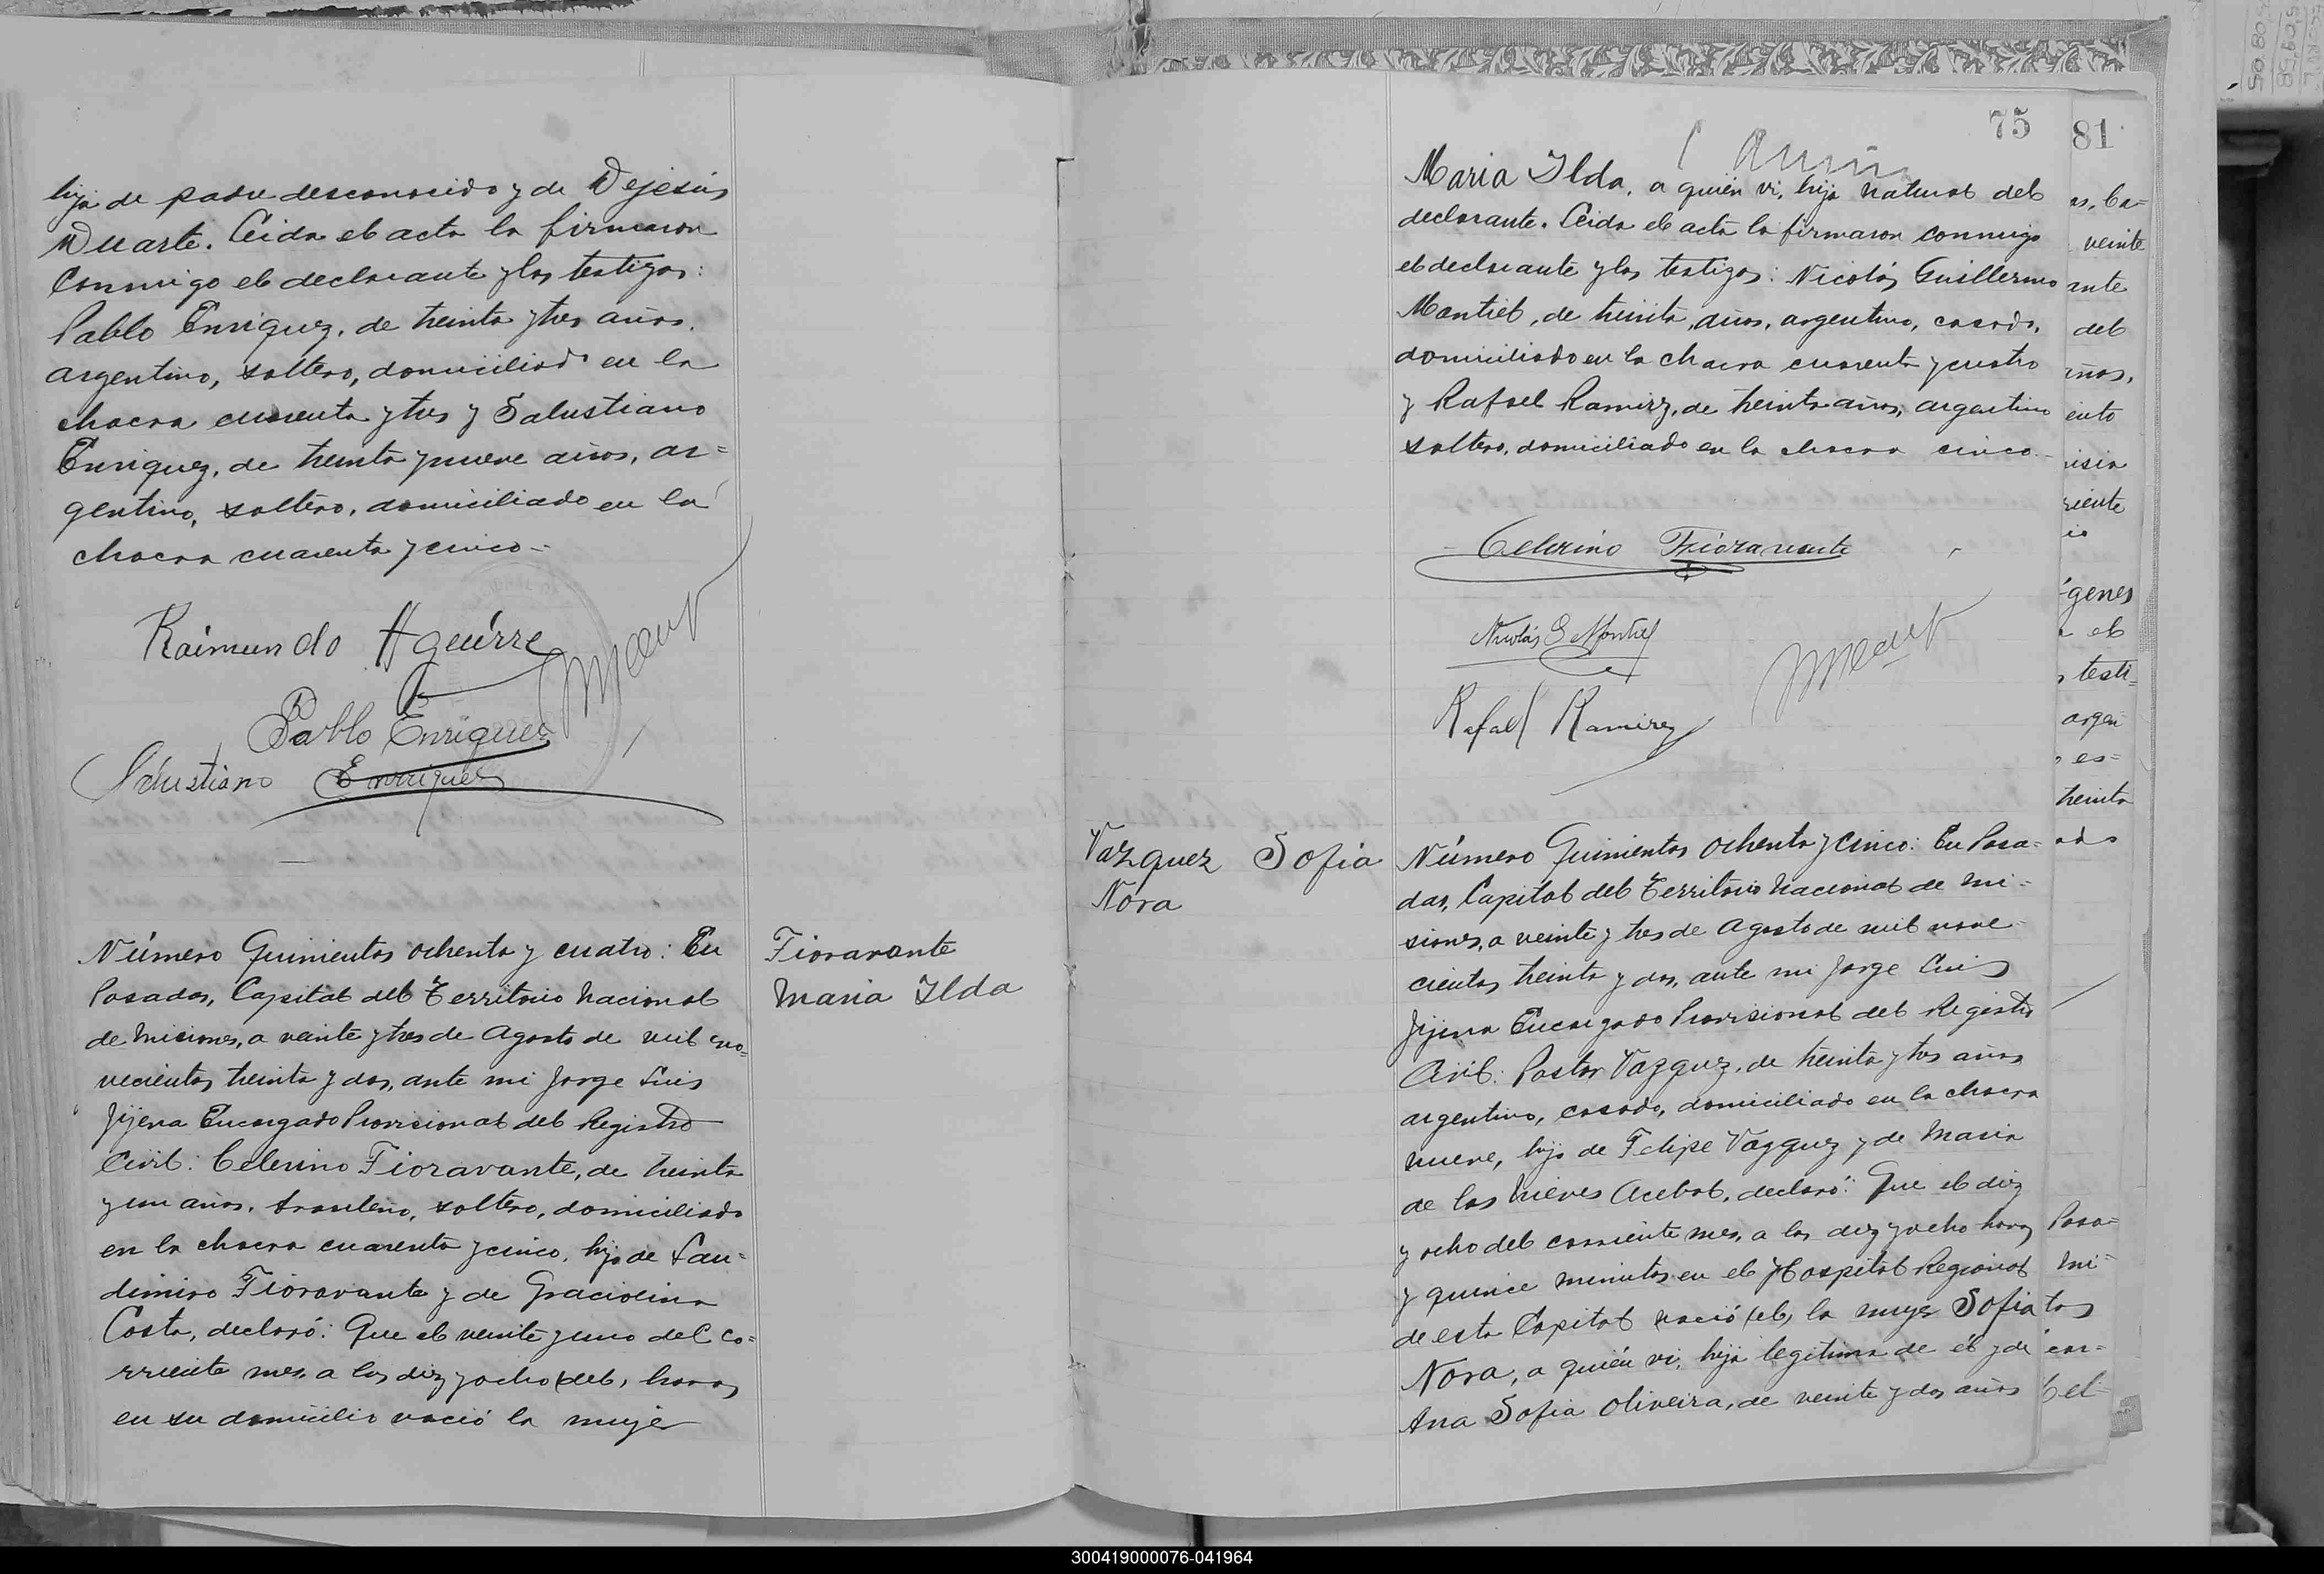 hija de padre desconocido y de Dejesús
Duarte. Leida el acta la firmaron
conmigo el declarante y los testigos:
Pablo Enriquez, de treinta y tres años,
argentino, soltero, domiciliado en la
chacra cuarenta y tres y Salustiano
Enriquez, de treinta y nueve años, ar=
gentino, soltero, domiciliado en la
chacra cuarenta y cinco-
Raimundo Aguirre
Pablo Enriquez
Salustiano Enrriquez
Número Quinientos ochenta y cuatro: En
Posadas, Capital del Territorio Nacional
de Misiones, a veinte y tres de Agosto de mil no=
vecientos treinta y dos, ante mi Jorge Luis
Jijena Encargado Provisional del Registro
Civil: Celerino Fioravante, de treinta
y un años, brasileño, soltero, domiciliado
en la chacra cuarenta y cinco, hijo de Lau=
dimiro Fioravante y de Graciolina
Costa, declaró: Que el veinte y uno del co=
rriente mes, a las diez y ocho (del, horas
en su domicilio nació la mujer
Fioravante
Maria Ilda
75
Maria Ilda, a quién vi, hija natural del
declarante. Leida el acta la firmaron conmigo
el declarante y los testigos: Nicolás Guillermo
Montiel, de treinta, años, argentino, casado,
domiciliado en la chacra cuarenta y cuatro
y Rafael Ramirez, de treinta años, argentino
soltero, domiciliado en la chacra cinco-
Celerino Fioravante
Nicolás G Montiel
Rafael Ramirez
Vazquez Sofia
Nora
Número Quinientos ochenta y cinco: En Posa=
das, Capital del Territorio Nacional de Mi-
siones, a veinte y tres de Agosto de mil nove-
cientos treinta y dos, ante mi Jorge Luis
Jijena Encargado Provisional del Registro
Civil: Pastor Vazquez, de treinta y tres años
argentino, casado, domiciliado en la chacra
nueve, hijo de Felipe Vazquez y de Maria
de las Nieves Acebal, declaró: Que el diez
y ocho del corriente mes, a las diez y ocho horas
y quince minutos en el Hospital Regional
de esta Capital nació (el, la mujer Sofia
Nora, a quién vi, hija legitima de él y de
Ana Sofia Oliveira, de veinte y dos años
81
as, ca=
veinte
ante
del
años,
ento
isia
riente
genes
el
testi=
argen
es=
treinta
Posa=
Mi=
tos
300419000076-041964